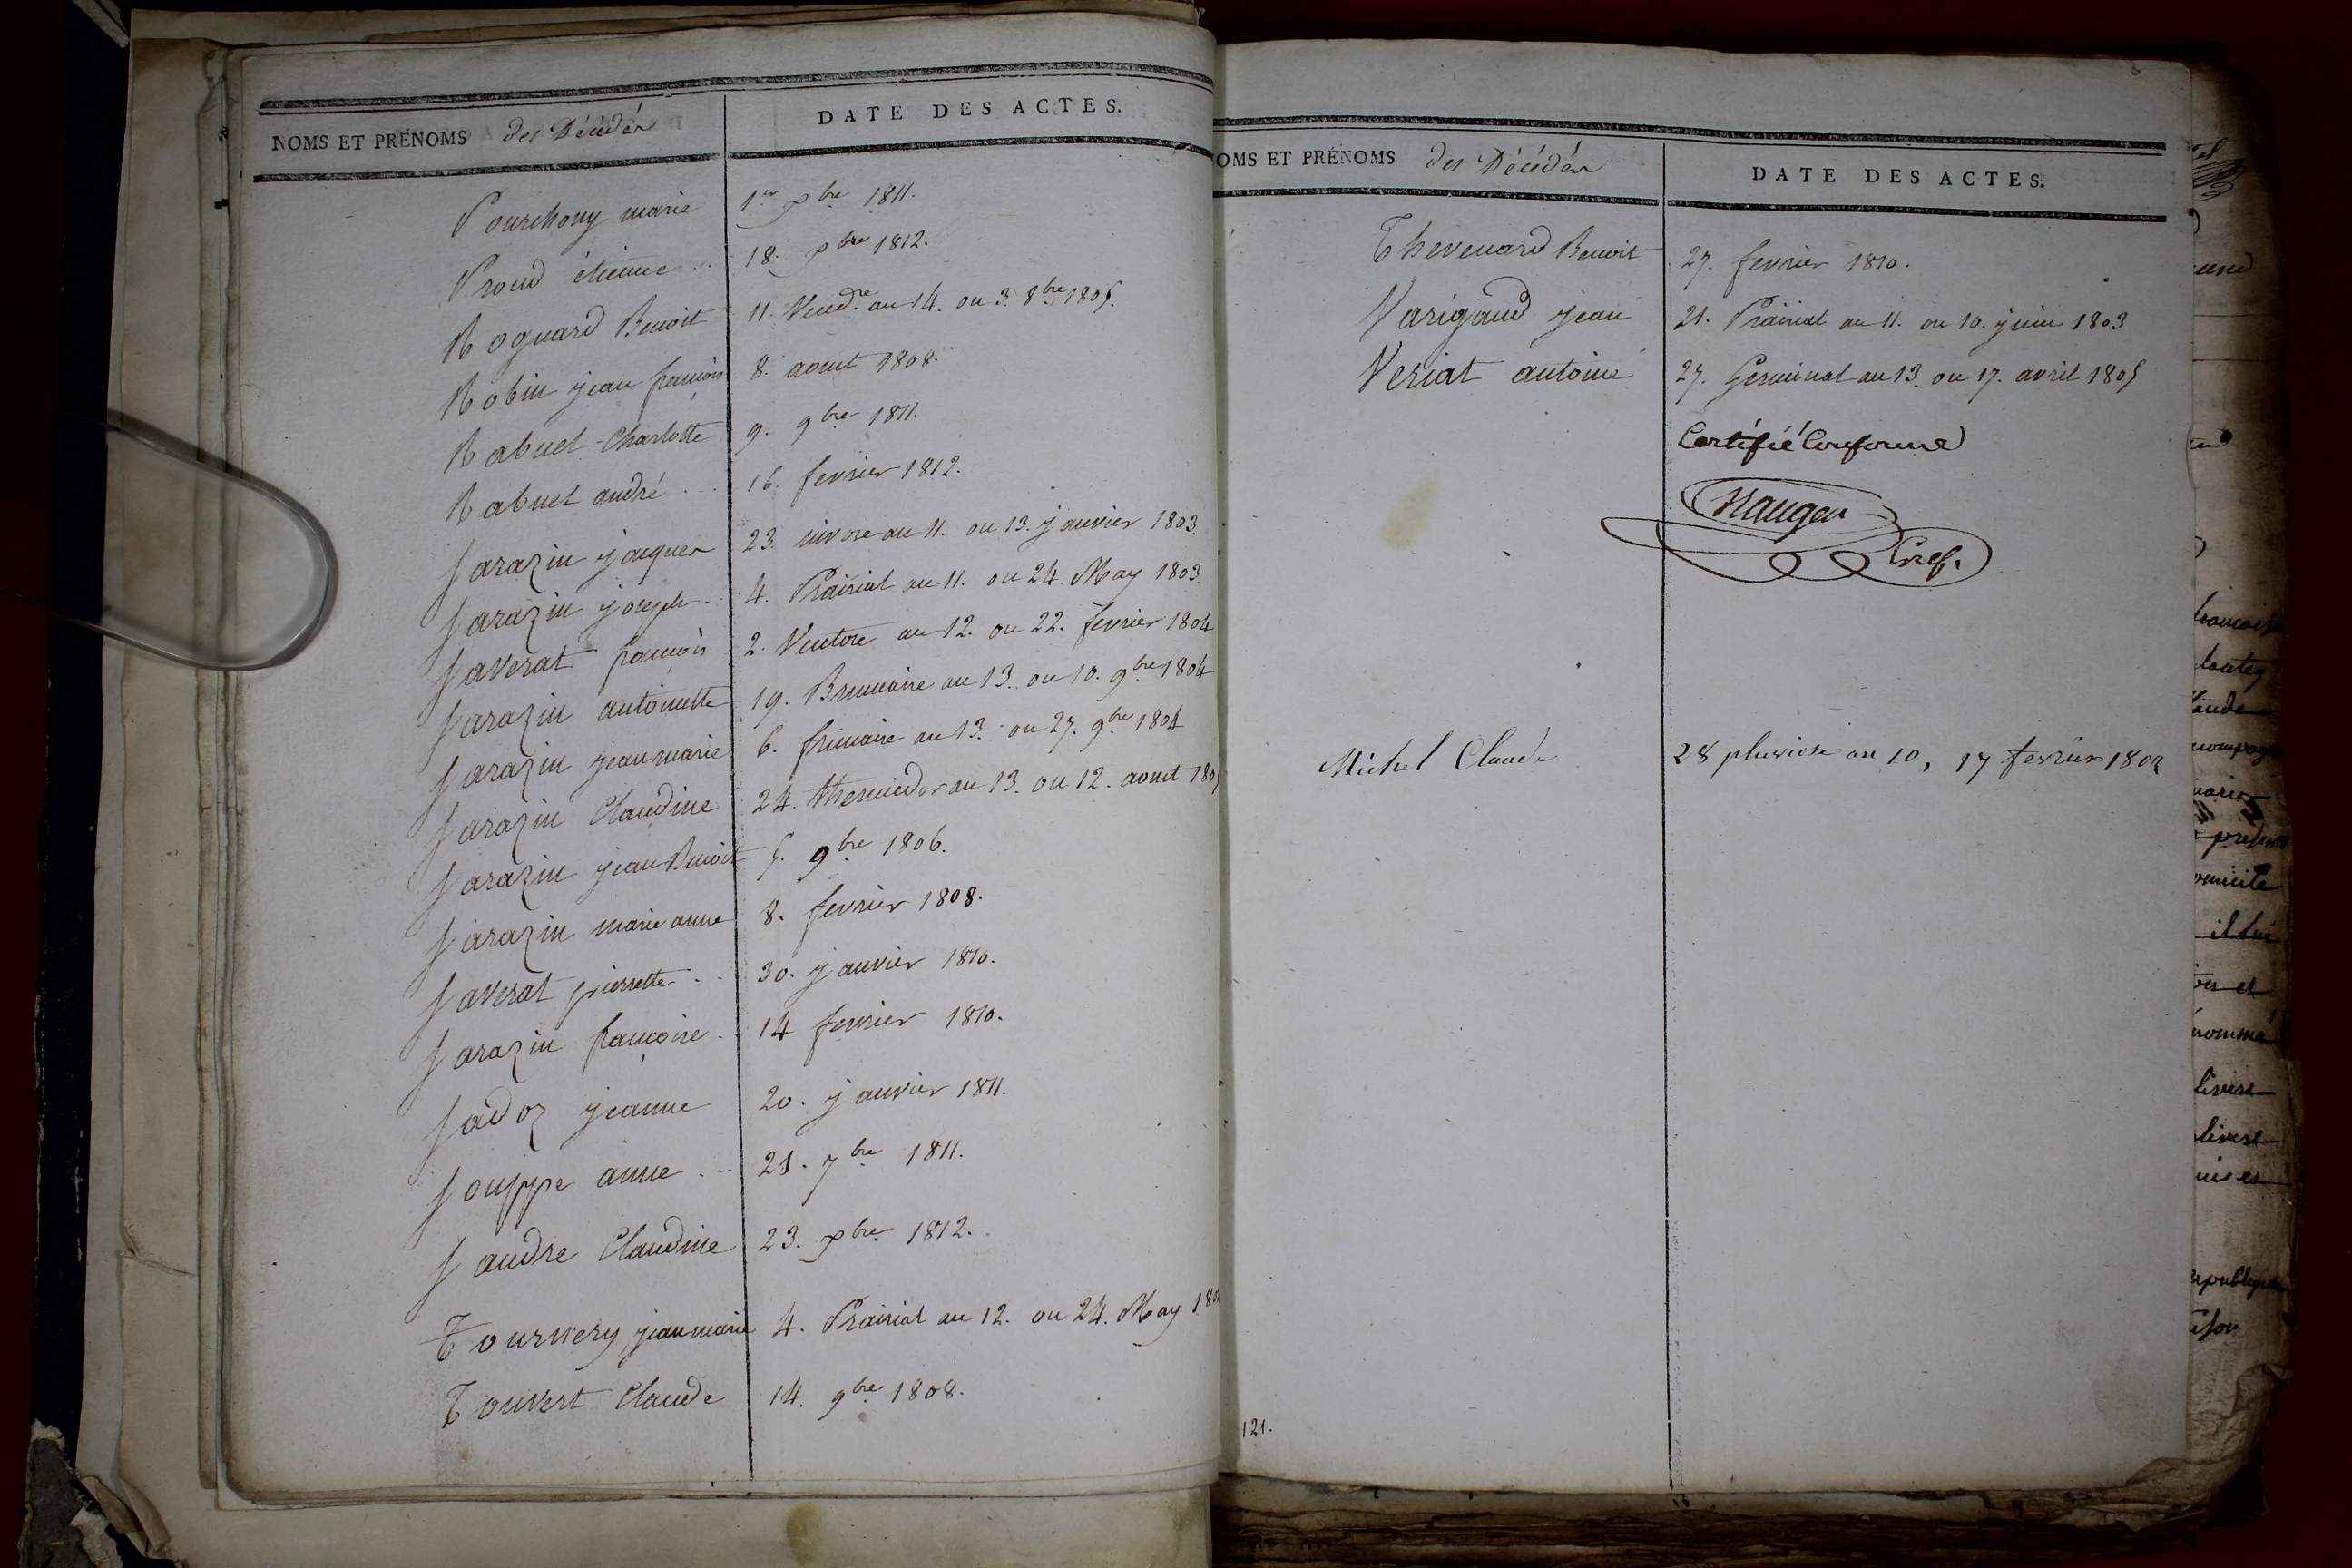 NOMS ET PRÉNOMS des Décédés
DATE DES ACTES.
Pourchouy marie 1er xbre 1811.
Proud étienne .. 18. xbre 1812.
Roguard Benoit 11. Vendre. an 14. ou 3. 8bre 1805.
Robin jean françois 8. aout 1808.
Rabuel Charlotte 9. 9bre 1811.
Rabuel andré ... 16. fevrier 1812.
Sarazin jacques 23. nivose an 11. ou 13. janvier 1803.
Sarazin joseph .. 4. Prairial an 11. ou 24. May 1803.
Saverat françois 2. Ventose an 12. ou 22. fevrier 1804
Sarazin antoinette 19. Brumaire an 13. ou 10. 9bre 1804
Sarazin jean marie 6. frimaire an 13. ou 27. 9bre 1804
Sarazin Claudine 24. thermidor an 13. ou 12. aout 1805
Sarazin jean Benoit 5. 9bre 1806.
Sarazin marie anne 8. fevrier 1808.
Saverat pierrette .. 30. janvier 1810.
Sarazin françoise .. 14 fevrier 1810.
Sadoz jeanne 20. janvier 1811.
Souppe anne ... 21. 7bre 1811.
Saudre Claudine 23. xbre 1812.
Tourvery jean marie 4. Prairial an 12. ou 24. May 180
Touvert Claude 14. 9bre 1808.
OMS ET PRÉNOMS des Décédés
DATE DES ACTES.
Thevenard Benoit 27. fevrier 1810.
Varigaud jean 21. Prairial an 11. ou 10. juin 1803
Veriat antoine 27. Germinal an 13. ou 17. avril 1805
Certifié Conforme
Naugea
Gref.
Michel Claude 28 pluviose an 10, 17 fevrier 1802
121.